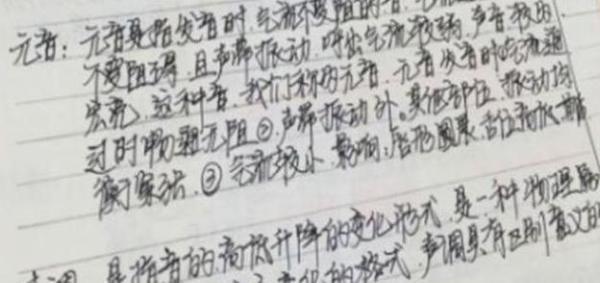 元音：元音是指发音时,气流不受阻的音.
不受阻碍,且声带振动,呼出气流较弱,声音较为
宏亮,这种音,我们称为元音,元音发音时①气流通
过时畅通无阻②声带振动外,其他部位,振动均
衡紧张.③气流较小,影响:唇形圆展,舌位高低前
是指音的高低升降的变化形式,是一种物理
的格式,声调具有区别意义的